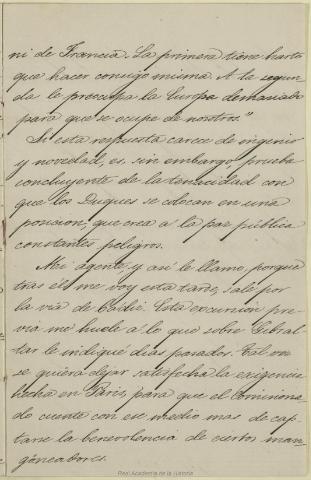 ni de Francia. La primera tiene harto
que hacer consigo misma. A la segun
da le preocupa la Europa demasiado
para que se ocupe de nosotros."
Si esta respuesta carece de ingenio
y novedad, es, sin embargo, prueba
concluyente de la tenacidad con
que los Duques se colocan en una
posicion, que crea a la paz pública
constantes peligros.
Mi agente, y asi le llamo, porque
tras él me voy esta tarde, sale por
la via de Cadiz. Esta excursión pre-
via me huele a lo que sobre Gibral-
tar le indiqué dias pasados. Tal vez
se quiera dejar satisfecha la exigencia
hecha en Paris, para que el comisiona
do cuente con ese medio mas de cap-
tarse la benevolencia de ciertos man-
goneadores.
Real Academia de la Historia